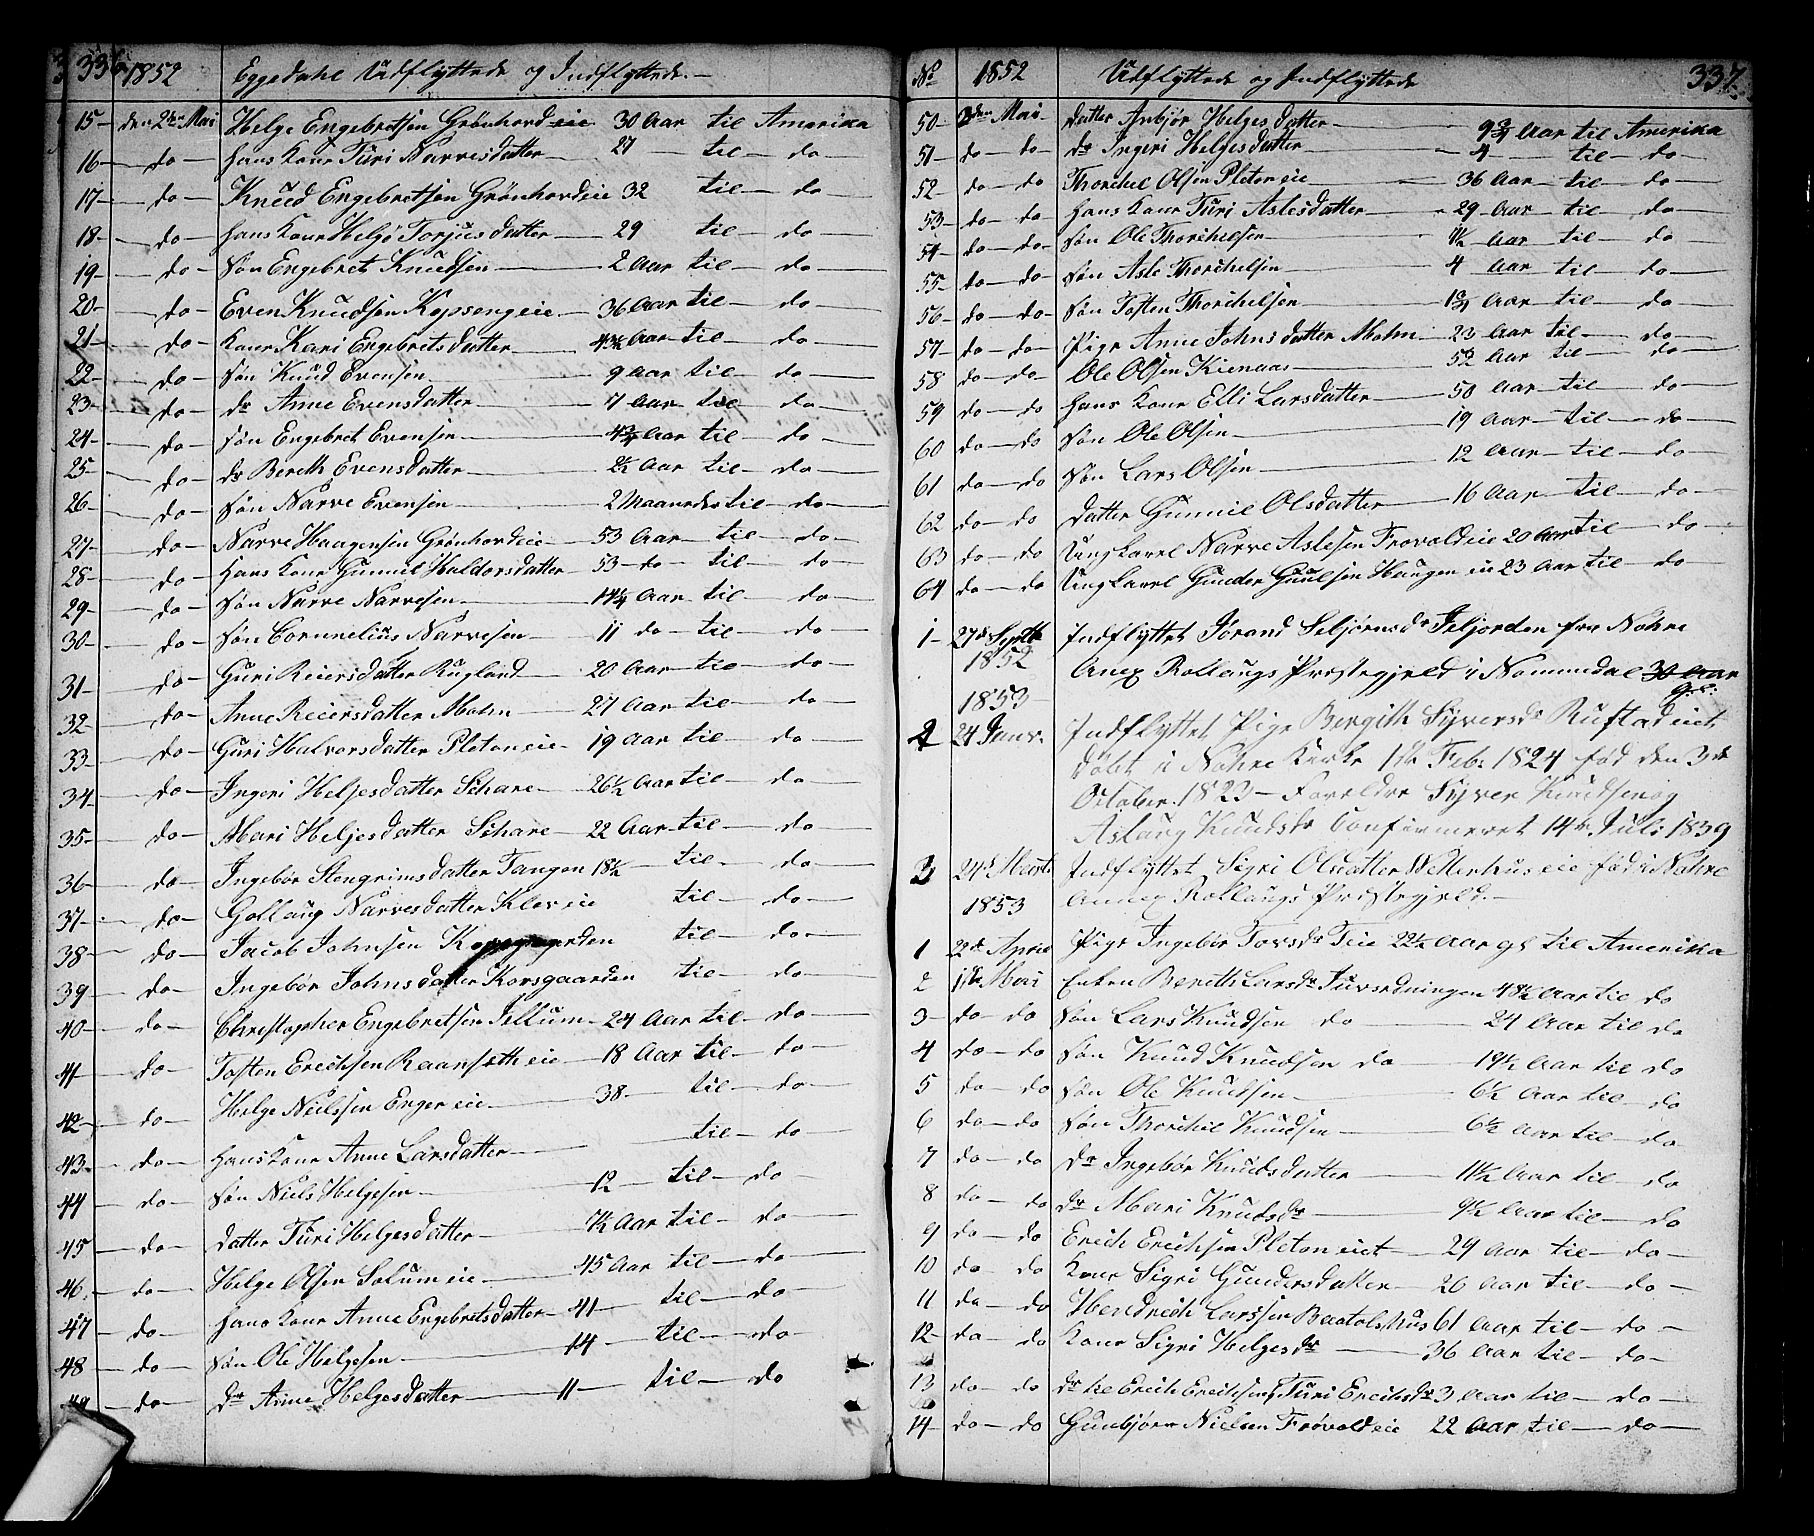 336 1852 Eggedahl Udflyttede og Indflyttede.
15 den 2den Mai Helge Engebretsen Grönhovdeie 30 Aar til Amerika
16 do hans Kone Turi Narvesdatter 27 til do
17 do Knud Engebretsen Grönhovdeie 32 til do
18 do hans Kone Helgö Torjusdatter 29 til do
19 do Søn Engebret Knudsen 2 Aar til do
20 do Even Knudsen Kopsengeie 36 Aar til do
21 do Kone Kari Engebretsdatter Aar til do
22 do Søn Knud Evensen 9 Aar til do
23 do dr Anne Evensdatter 7 Aar til do
24 do Søn Engebret Evensen Aar til do
25 do dr Bereth Evensdatter 2½ Aar til do
26 do Søn Narve Evensen 2 Maaneder til do
27 do Narve Haagensen Grönhovdeie 53 Aar til do
28 do hans Kone Gunnil Haldorsdatter 53 do til do
29 do Søn Narve Narvesen 14¼ Aar til do
30 do Søn Cornnelius Narvesen 11 do til do
31 do Guri Reiersdatter Rugland 20 Aar til do
32 do Anne Reiersdatter Mohn 27 Aar til do
33 do Guri Halvorsdatter Pletoneie 19 Aar til do
34 do Ingeri Helgesdatter Schare 26½ Aar til do
35 do Mari Helgesdatter Schare 22 Aar til do
36 do Ingebör Stengrimsdatter Tangen 18½ til do
37 do Gollaug Narvesdatter Kleveie til do
38 do Jacob Johnsen til do
39 do Ingebör Johnsdatter Korsgaarden til do
40 do Christopher Engebretsen Jellum 24 Aar til do
41 do Tosten Erichsen Raanseth eie 18 Aar til do
42 do Helge Neilsen Enger eie 38 til do
43 do hans Kone Anne Larsdatter til do
44 do Søn Niels Helgesen 12 til do
45 do datter Turi Helgesdatter 7½ Aar til do
46 do Helge Olsen Solum eie 45 Aar til do
47 do hans Kone Anne Engebretsdatter 41 til do
48 do Søn Ole Helgesen 14 til do
49 do dr Anne Helgesdatter 11 til do
No 1852 Udflyttede og Indflyttede 337
50 2den Mai datter Anbjör Helgesdatter 9¾ Aar til Amerika
51 do do dr Ingeri Helgesdatter 4 til do
52 do do Thorchel Olsen Pletoneie 36 Aar til do
53 do do hans Kone Turi Aslesdatter 29 Aar til do
54 do do Søn Ole Thorchelsen Aar til do
55 do do Søn Asle Thorchelsen 4 Aar til do
56 do do Søn Tosten Thorchelsen 1¾ Aar til do
57 do do Pige Anne Johnsdatter Mohn 23 Aar til do
58 do do Ole Olsen Kienaas 52 Aar til do
59 do do hans Kone Elli Larsdatter 50 Aar til do
60 do do Søn Ole Olsen 19 Aar til do
61 do do Søn Lars Olsen 12 Aar til do
62 do do datter Gunnil Olsdatter 16 Aar til do
63 do do Ungkarl Narve Aslesen Frøvoldeie 20 Aar til do
64 do do Ungkarl Gunder Guulsen Haugen eie 23 Aar til do
1 27de Septbr 1852 Indflyttet Jörand Seljörnsdr Jeljorden fra Nohre
Anex Rollaugs Præstegjeld i Nommedal 30 Aar
gl:
1853
2 24 Janv. Indflyttet Pige Bergith Syversdr Rustadeiet
döbt i Nohre Kirke 1ste Feb: 1824 fød den 3de
October 1823 Forældre Syver Knudsen og
Aslaug Knudsdr Confirmeret 14de Juli 1839
3 24de Marts 1853 Indflyttet Sigri Olsdatter Wetterhus eie född i Nohre
Annex Rollaugs Præstegjeld.
1 22de April Pige Ingebör Tovsdr Teie 22½ Aar gl til Amerika
2 1ste Mai Enken Bereth Larsdr Juvsedningen 48½ Aar til do
3 do do Søn Lars Knudsen do 24 Aar til do
4 do do Søn Knud Knudsen do 19½ Aar til do
5 do do Søn Ole Knudsen 6½ Aar til do
6 do do Søn Thorchil Knudsen 6½ Aar til do
7 do do dr Ingebör Knudsdatter 11½ Aar til do
8 do do dr Mari Knudsdr 9½ Aar til do
9 do do Erich Erichsen Pletoneiet 29 Aar til do
10 do do Kone Sigri Gundersdatter 26 Aar til do
11 do do Hendrech Larssen Baatolshus 61 Aar til do
12 do do Kone Sigri Helgesdr 36 Aar til do
13 do do dr til Erich Erichsen Turi Erichsdr 3 Aar til do
14 do do Gunbjörn Nielsen Frøvoldeie 22 Aar til do